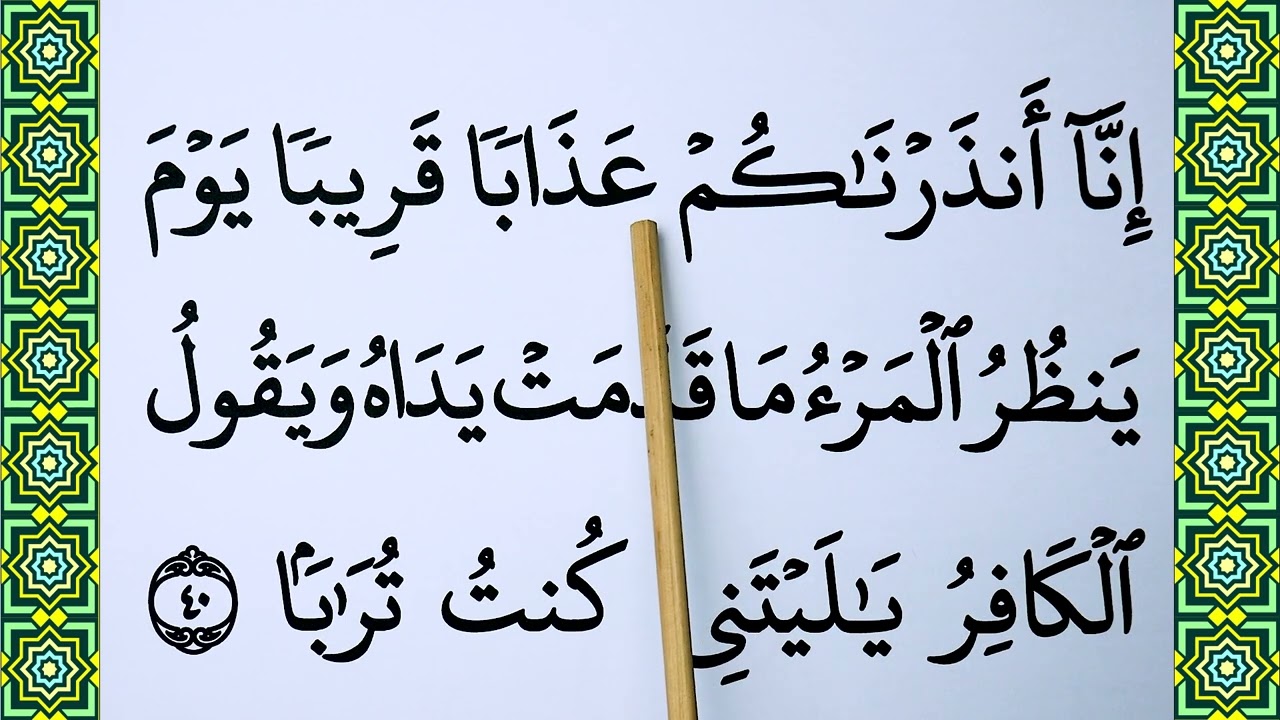 إِنَّآ أَنذَرْنَٰكُمْ عَذَابًا قَرِيبًا يَوْمَ
يَنظُرُ ٱلْمَرْءُ مَا قَدَّمَتْ يَدَاهُ وَيَقُولُ
ٱلْكَافِرُ يَٰلَيْتَنِى كُنتُ تُرَٰبَۢا ٤٠